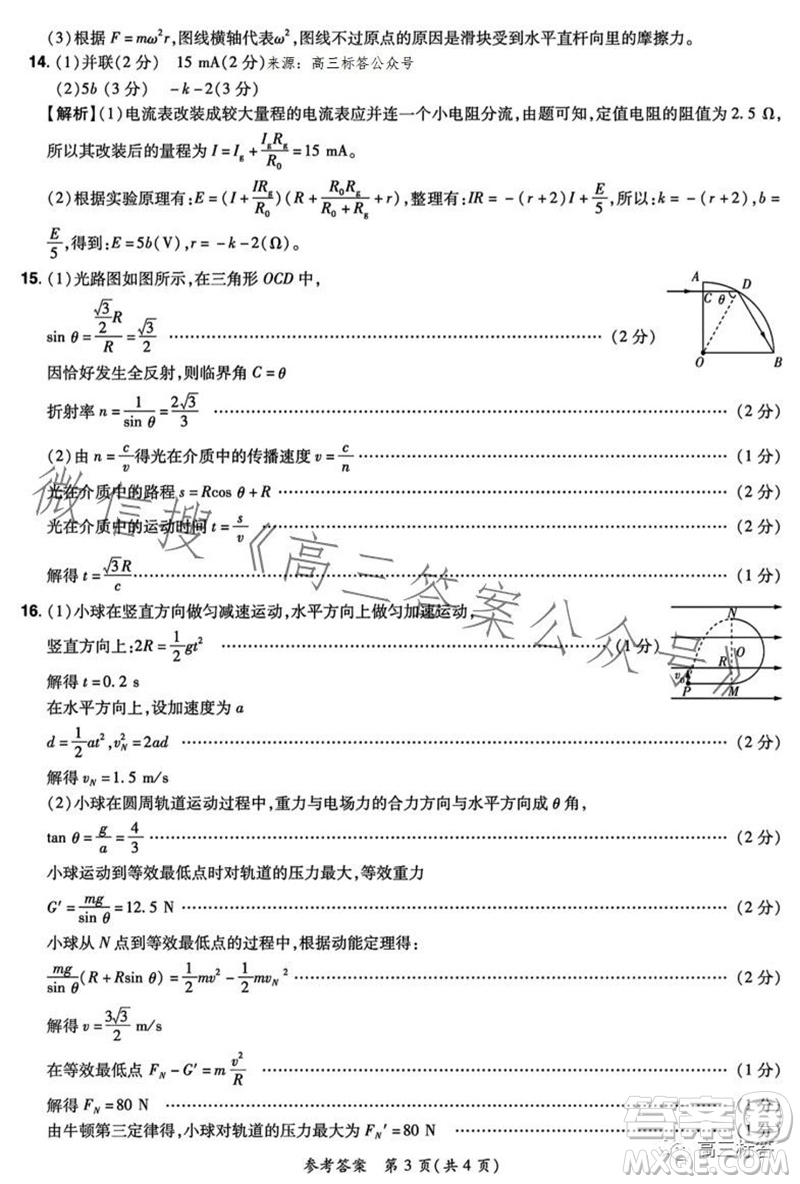 (3)根据 F=mω²r,图线横轴代表ω²,图线不过原点的原因是滑块受到水平直杆向里的摩擦力。
14. (1)并联(2 分) 15 mA(2 分)来源：高三标答公众号
(2)5b (3 分) -k-2(3 分)
【解析】(1)电流表改装成较大量程的电流表应并连一个小电阻分流,由题可知,定值电阻的阻值为 2.5 Ω,
所以其改装后的量程为 I=I_g+I_gR_g/R₀=15 mA。
(2)根据实验原理有:E=(I+IR_g/R₀)(R+R₀R_g/(R₀+R_g)+r),整理有:IR=-(r+2)I+E/5,所以:k=-(r+2),b=
E/5,得到:E=5b(V),r=-k-2(Ω)。
15. (1)光路图如图所示,在三角形 OCD 中,
A
D
C θ
O
B
sin θ=(√3/2)R/R=√3/2 ……(2 分)
因恰好发生全反射,则临界角 C=θ
折射率 n=1/sin θ=2√3/3 ……(2 分)
(2)由 n=c/v得光在介质中的传播速度 v=c/n ……(1 分)
光在介质中的路程 s=Rcos θ+R ……(2 分)
光在介质中的运动时间 t=s/v ……(2 分)
解得 t=√3R/c ……(1 分)
16. (1)小球在竖直方向做匀减速运动,水平方向上做匀加速运动,
N
O
R
v₀
P
M
竖直方向上:2R=1/2gt² ……(1 分)
解得 t=0.2 s
在水平方向上,设加速度为 a
d=1/2at²,v_N²=2ad ……(2 分)
解得 v_N=1.5 m/s
(2)小球在圆周轨道运动过程中,重力与电场力的合力方向与水平方向成 θ 角,
tan θ=g/a=4/3 ……(2 分)
小球运动到等效最低点时对轨道的压力最大,等效重力
G′=mg/sin θ=12.5 N ……(2 分)
小球从 N 点到等效最低点的过程中,根据动能定理得:
mg/sin θ(R+Rsin θ)=1/2mv²-1/2mv_N² ……(2 分)
解得 v=3√3/2 m/s
在等效最低点 F_N-G′=m v²/R ……(1 分)
解得 F_N=80 N ……(1 分)
由牛顿第三定律得,小球对轨道的压力最大为 F_N′=80 N ……(1 分)
参考答案 第 3 页(共 4 页)
微信搜《高三答案公众号》
答案圈
MXQE.COM
高三标答